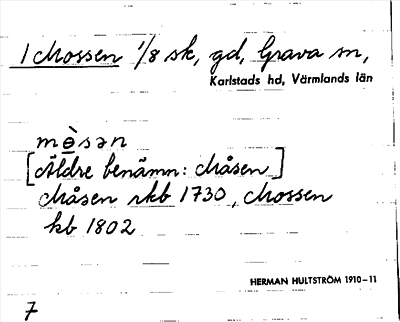 1 Mossen 1/8 sk, gd, Grava sn,
Karlstads hd, Värmlands län
mo̱̊̀sən
[Äldre benämn: Måsen]
Måsen rkb 1730, Mossen
kb 1802
HERMAN HULTSTRÖM 1910-11
7